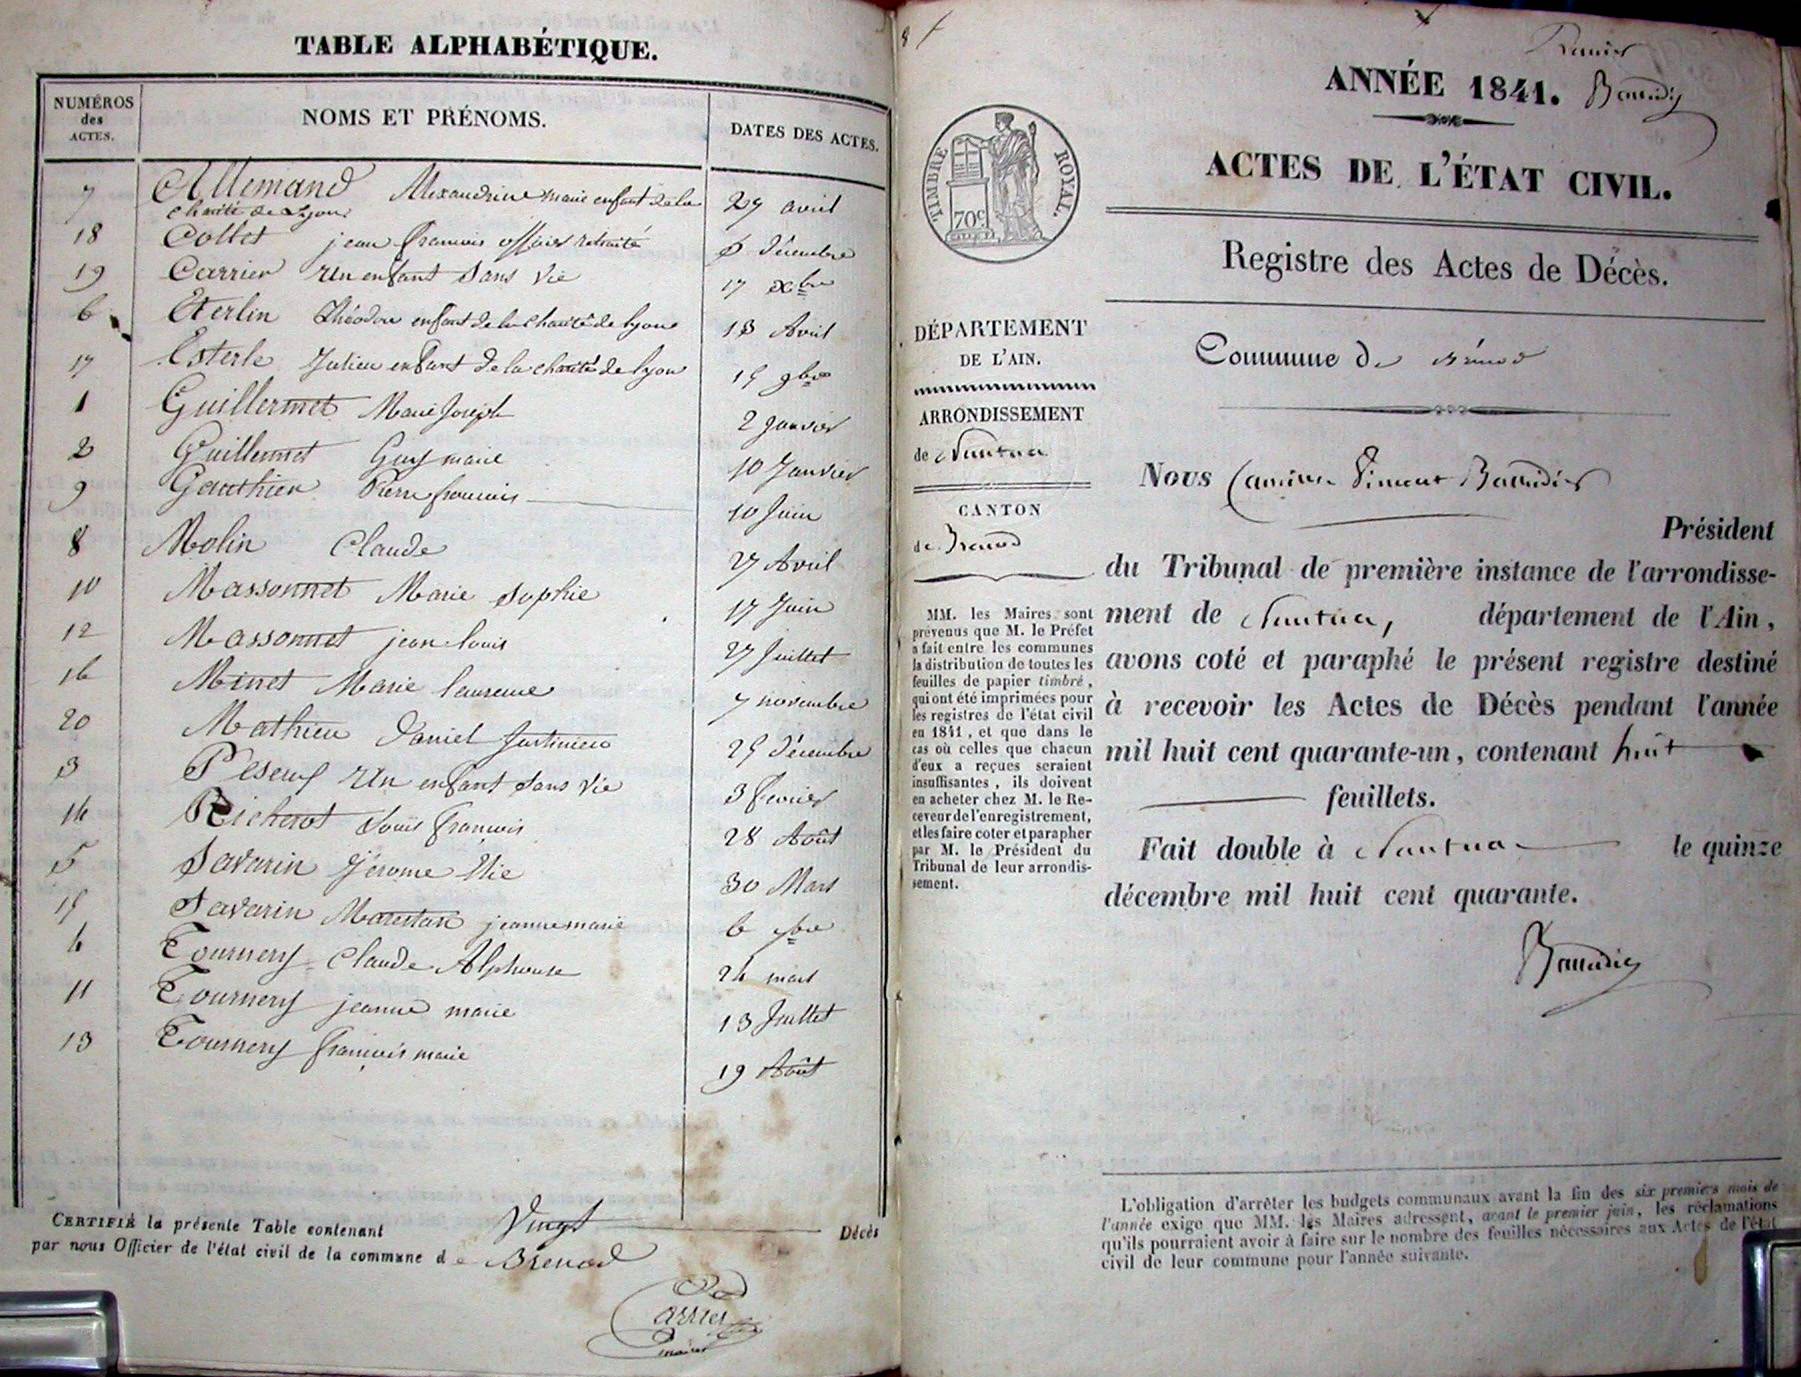 TABLE ALPHABÉTIQUE.
NUMÉROS des ACTES.
NOMS ET PRÉNOMS.
DATES DES ACTES.
7 Allemand Alexandrine marie enfant de la 27 avril
charité de Lyon
18 Collet jean françois officier retraité 6 décembre
19 Carrier Un enfant Sans Vie 17 xbre
6 Eterlin Théodore enfant de la charité de lyon 13 Avril
17 Esterle Julien enfant de la charité de lyon 15 9bre
1 Guillermet Marie Joseph 2 Janvier
2 Guillermet Guy marie 10 Janvier
9 Gauthier Pierre françois 10 Juin
8 Molin Claude 27 Avril
10 Massonnet Marie Sophie 17 Juin
12 Massonnet jean louis 27 Juillet
16 Minet Marie laurence 7 novembre
20 Mathieu Daniel 25 décembre
3 Un enfant Sans Vie 3 fevrier
14 Richerot Louis françois 28 Août
5 Savarin Jérome Elie 30 Mars
15 Savarin jeanne marie 6 7bre
4 Tournery Claude Alphonse 24 mars
11 Tournery jeanne marie 13 Juillet
13 Tournery françois marie 19 Août
CERTIFIÉ la présente Table contenant Vingt Décès
par nous Officier de l'état civil de la commune de Brenod
Carrier
maire
8
ANNÉE 1841.
TIMBRE ROYAL.
70c
ACTES DE L'ÉTAT CIVIL.
Registre des Actes de Décès.
Commune de Brénod
DÉPARTEMENT
DE L'AIN.
ARRONDISSEMENT
de Nantua
CANTON
de Brenod
MM. les Maires sont
prévenus que M. le Préfet
a fait entre les communes
la distribution de toutes les
feuilles de papier timbré,
qui ont été imprimées pour
les registres de l'état civil
en 1841, et que dans le
cas où celles que chacun
d'eux a reçues seraient
insuffisantes, ils doivent
en acheter chez M. le Re-
ceveur de l'enregistrement,
et les faire coter et parapher
par M. le Président du
Tribunal de leur arrondis-
sement.
Nous
Président
du Tribunal de première instance de l'arrondisse-
ment de Nantua, département de l'Ain,
avons coté et paraphé le présent registre destiné
à recevoir les Actes de Décès pendant l'année
mil huit cent quarante-un, contenant huit
feuillets.
Fait double à Nantua le quinze
décembre mil huit cent quarante.
L'obligation d'arrêter les budgets communaux avant la fin des six premiers mois de
l'année exige que MM. les Maires adressent, avant le premier juin, les réclamations
qu'ils pourraient avoir à faire sur le nombre des feuilles nécessaires aux Actes de l'état
civil de leur commune pour l'année suivante.